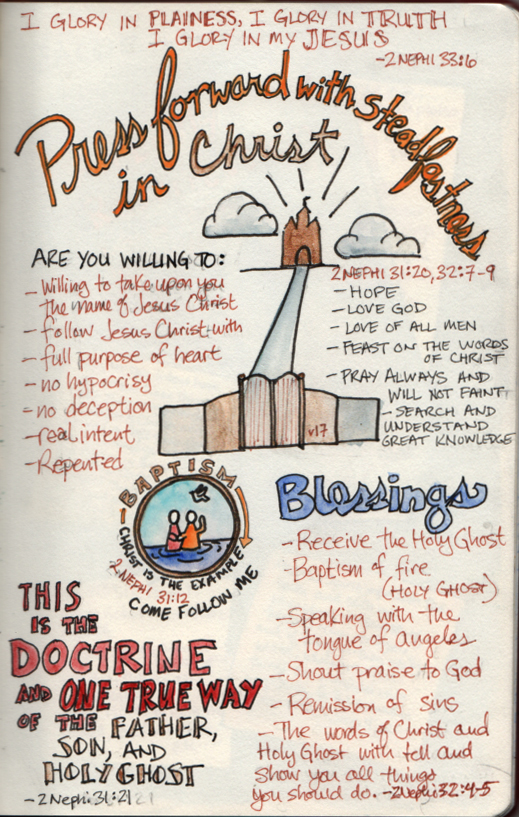 I GLORY IN PLAINESS, I GLORY IN TRUTH
I GLORY IN MY JESUS
-2 NEPHI 33:6
Press forward with steadfastness
in Christ
ARE YOU WILLING TO:
- willing to take upon you
the name of Jesus Christ
- follow Jesus Christ with
- full purpose of heart
- no hypocrisy
- no deception
- real intent
- Repented
2 NEPHI 31:20, 32:7-9
- HOPE
- LOVE GOD
- LOVE OF ALL MEN
- FEAST ON THE WORDS
OF CHRIST
- PRAY ALWAYS AND
WILL NOT FAINT
- SEARCH AND
UNDERSTAND
GREAT KNOWLEDGE
v17
BAPTISM
CHRIST IS THE EXAMPLE
2 NEPHI 31:12
COME FOLLOW ME
THIS
IS THE
DOCTRINE
AND ONE TRUE WAY
OF THE FATHER,
SON, AND
HOLY GHOST
- 2 Nephi 31:21
Blessings
- Receive the Holy Ghost
- Baptism of fire
(HOLY GHOST)
- Speaking with the
tongue of angeles
- Shout praise to God
- Remission of sins
- The words of Christ and
Holy Ghost with tell and
show you all things
you should do. -2 Nephi 32:4-5